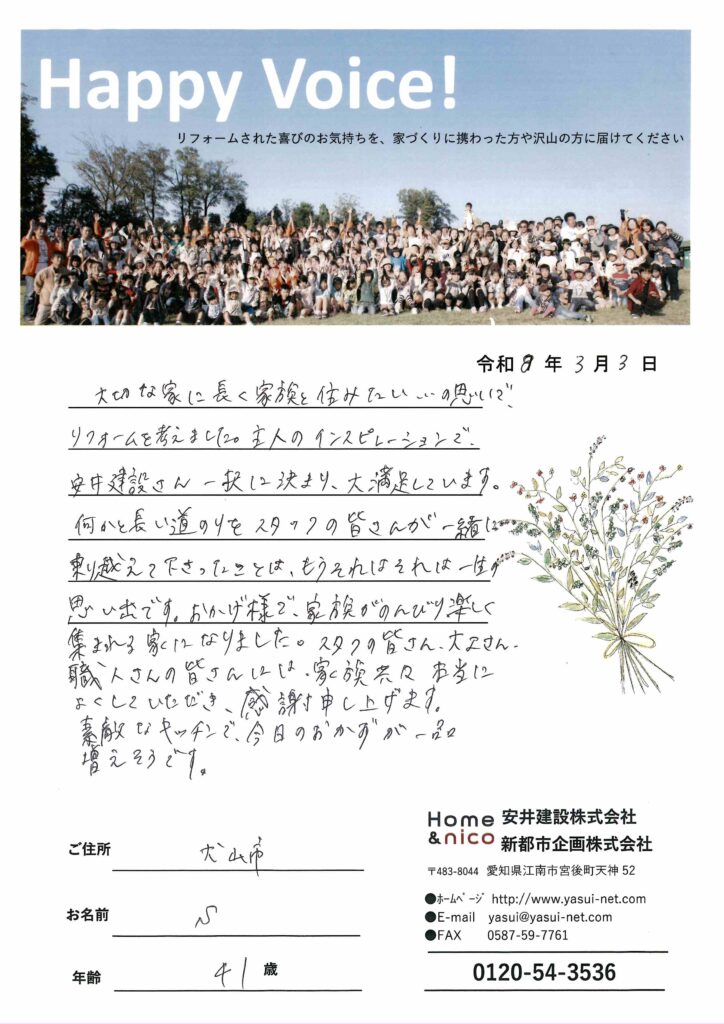 Happy Voice!
リフォームされた喜びのお気持ちを、家づくりに携わった方や沢山の方に届けてください
令和8年3月3日
大切な家に長く家族と住みたい…の思いで、
リフォームを考えました。主人のインスピレーションで、
安井建設さん一択に決まり、大満足しています。
何かと長い道のりをスタッフの皆さんが一緒に
乗り越えて下さったことは、もうそれはそれは一生の
思い出です。おかげ様で、家族がのんびり楽しく
集まれる家になりました。スタッフの皆さん、大工さん、
職人さんの皆さんには、家族共々本当に
よくしていただき、感謝申し上げます。
素敵なキッチンで、今日のおかずが一品
増えそうです。
Home &nico
安井建設株式会社
新都市企画株式会社
〒483-8044 愛知県江南市宮後町天神52
●ホームページ http://www.yasui-net.com
●E-mail yasui@yasui-net.com
●FAX 0587-59-7761
0120-54-3536
ご住所 犬山市
お名前 S
年齢 41歳